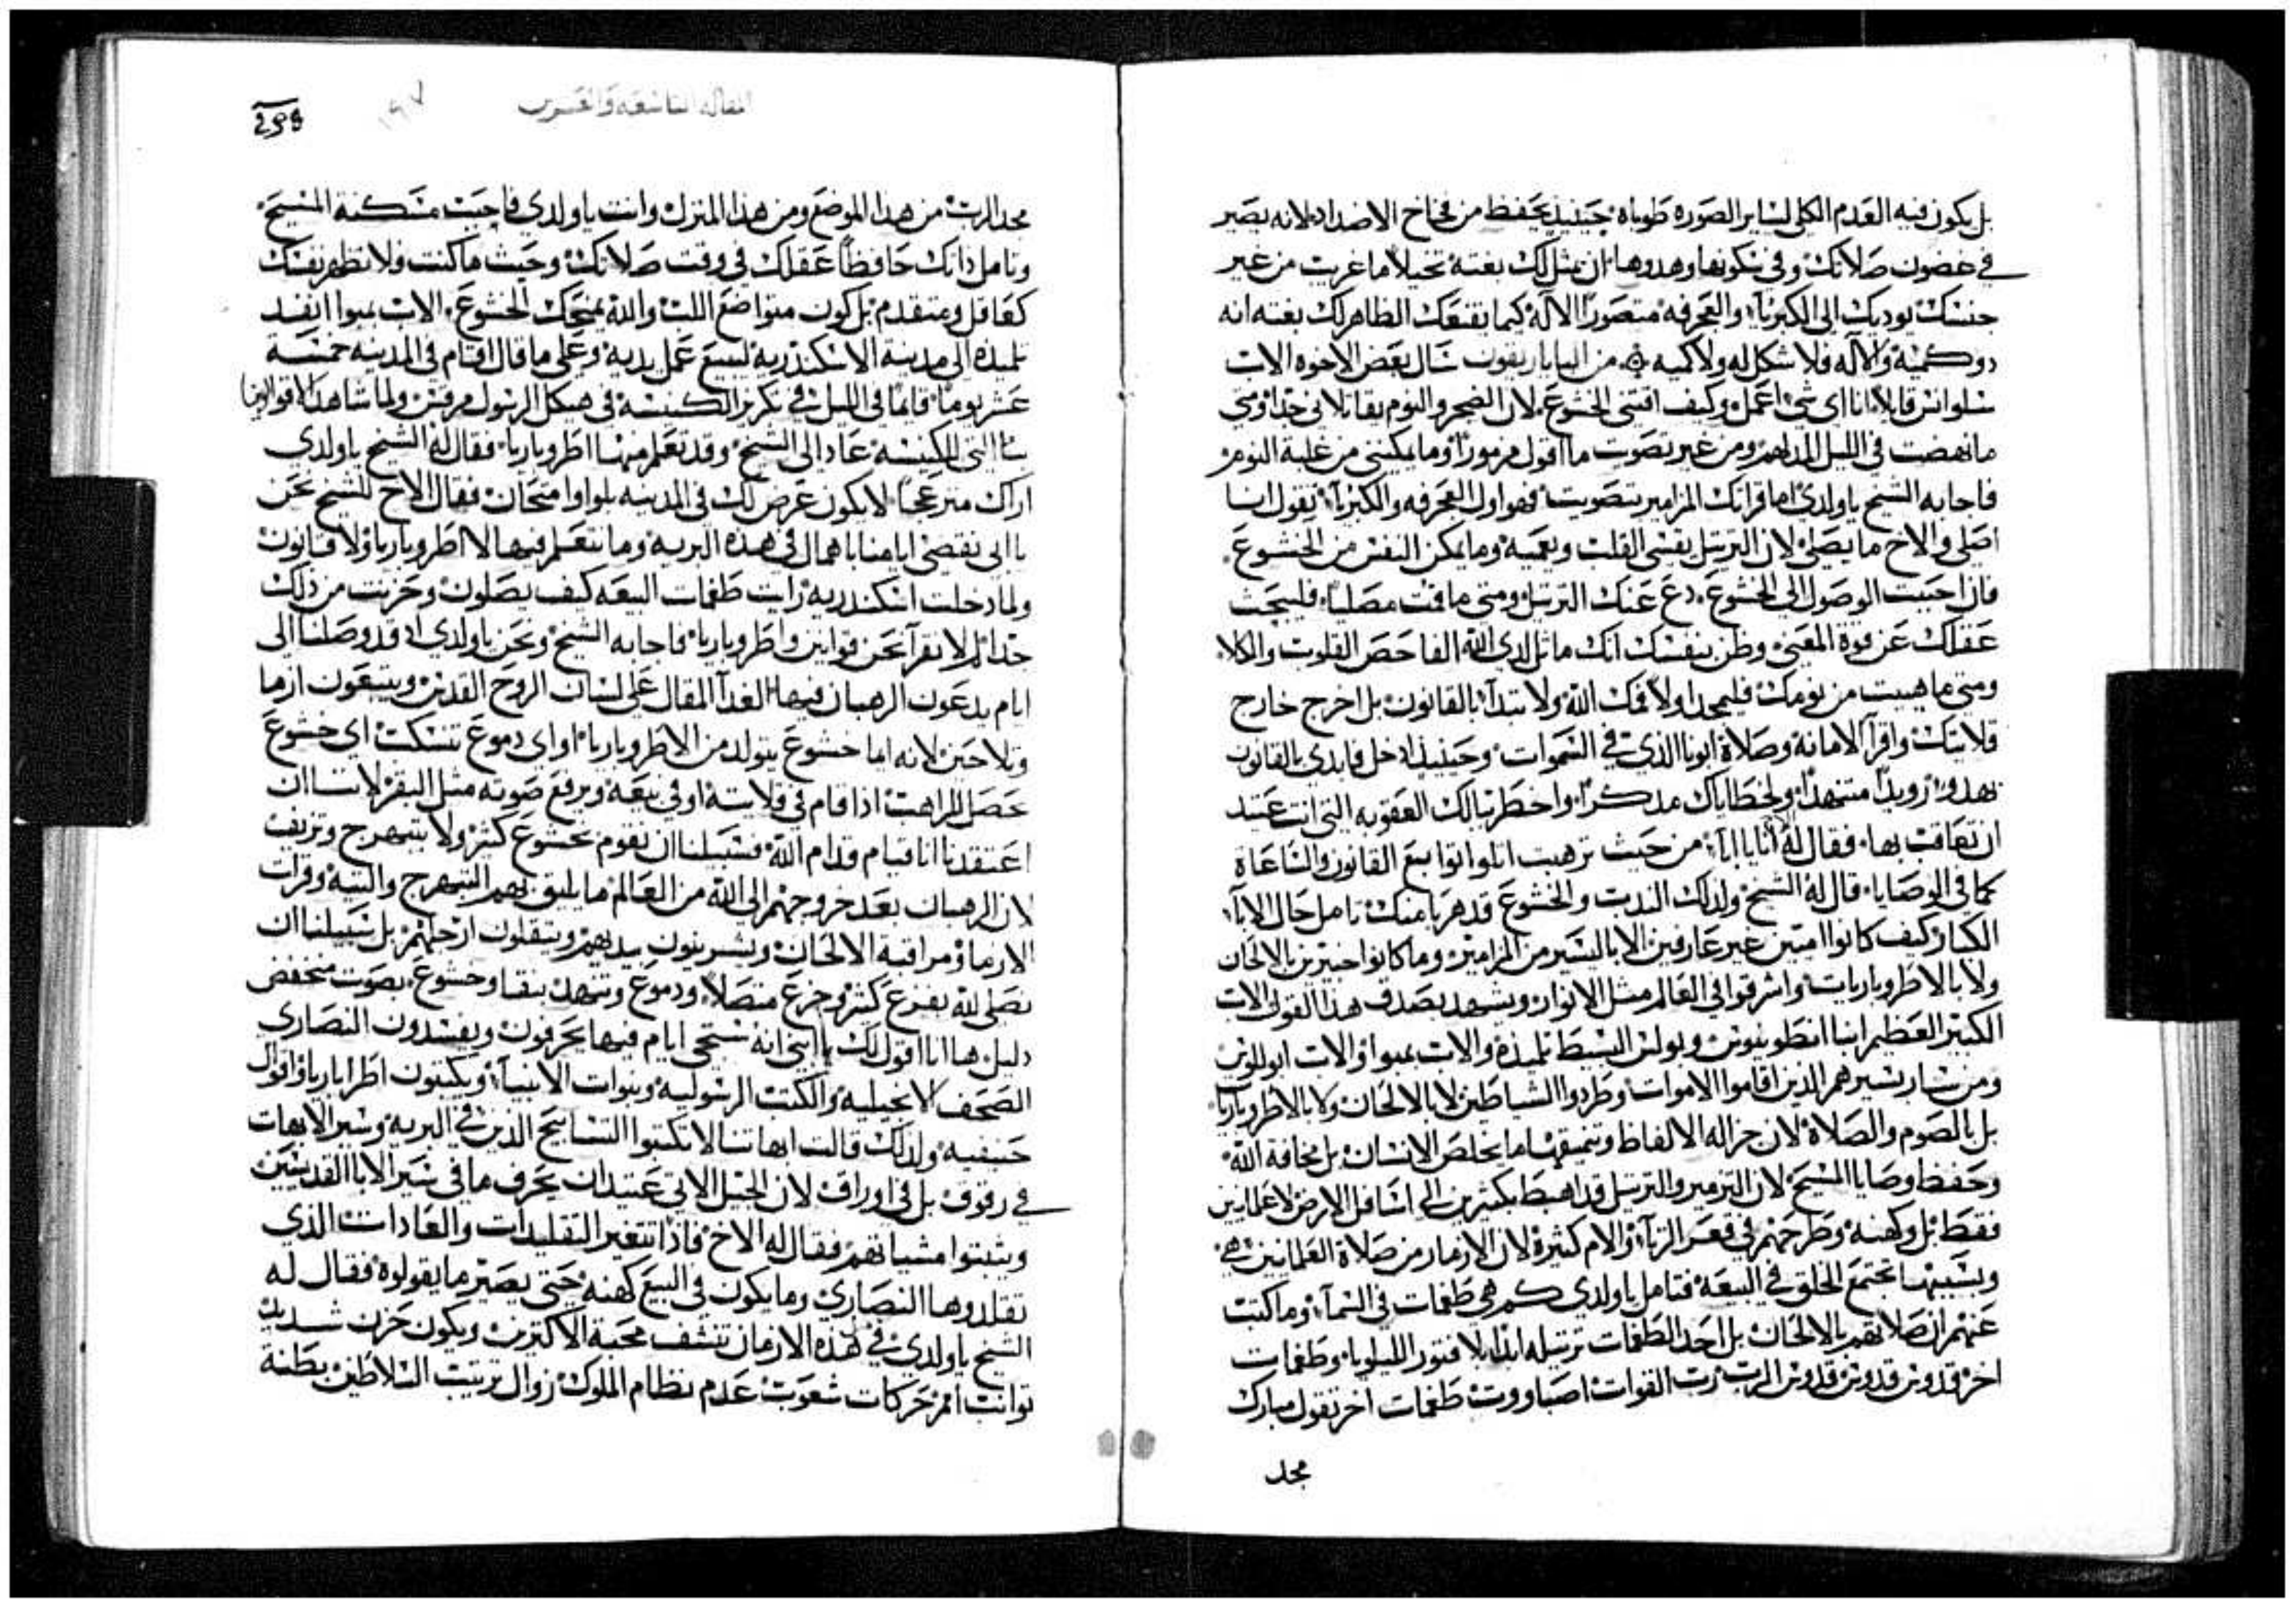 بل يكون فيه العدم الكلي لساير الصوره طوباه حينيذ يحفظ من فخاخ الاضداد لانه يصير
في غضون صلاتك وفي سكونها وهدوها ان مثل لك بغتة تخيلاً ما غريب من غير
جنسك يوديك الى الكبريآ والعجرفه متصوراً الاله كيما يقنعك الظاهر لك بغته انه
ذو كمية والاله فلا شكل له ولا كميه من البابا ريغون سال بعض الاخوه الاب
سلوانس قايلاً انا اي شي اعمل وكيف اقتني الخشوع لان الضجر والنوم يقاتلاني جدا ومتي
ما نهضت في الليل المدلهم ومن غير تصويت ما اقول مزموراً وما يمكنني من غلبة النوم
فاجابه الشيخ ياولدي اما قراتك المزامير بتصويت فهو اول العجرفه والكبريآ تقول انا
اصلي والاخ ما يصلي لان الترتيل يقسي القلب ويعميه وما يمكن النفس من الخشوع
فان احببت الوصول الى الخشوع دع عنك الترتيل ومتي ما قمت مصلياً فليبحث
عقلك عن قوة المعني وظن بنفسك انك ماثل لدي الله الفاحص القلوب والكلا
ومتي ما هببت من نومك فليمجد اولاً فمك الله ولا تبتدآ بالقانون بل اخرج خارج
قلايتك واقرآ الامانة وصلاة ابونا الذي في السموات وحينيذ ادخل وابدي بالقانون
بهدو رويداً متنهداً ولخطاياك متذكراً واخطر ببالك العقوبه التي انت عتيد
ان تعاقب بها فقال له انا يا ابآ من حيث ترهبت اتلوا توابيع القانون والساعاة
كما في الوصايا قال له الشيخ ولذلك الندب والخشوع قد هربا منك تامل حال الابآ
الكبار كيف كانوا اميين غير عارفين الا باليسير من المزامير وما كانوا خبيرين بالالحان
ولا بالاطروباريات واشرقوا في العالم مثل الانوار ويشهد بصدق هذا القول الاب
الكبير العظيم ابنا انطونيوس وبولس البسيط تلميذه والاب بموا والاب ابوللوس
ومن سار بسيرهم الذين اقاموا الاموات وطردوا الشياطين لا بالالحان ولا بالاطروباريا
بل بالصوم والصلاة لان جزاله الالفاظ وتنميقها ما يخلص الانسان بل مخافة الله
وحفظ وصايا المسيح لان التزمير والترتيل قد اهبط بكثيرين الى اسافل الارض لا علمانيين
فقط بل وكهنه وطرحهم في قعر الزنآ والام كثيرة لان الارمار من صلاة العلمانيين هي
وبسببها تجتمع الخلق في البيعه فتامل ياولدي كم هي طغمات في السمآ وما كتب
عنهم ان صلاتهم بالالحان بل احد الطغمات ترتيله ابداً بلا فتور الليلويا وطغمات
اخر قدوس قدوس قدوس الرب رب القوات اصباووت طغمات اخر تقول مبارك
مجد
المقاله التاسعه والعشرين
مجد الرب من هذا الموضع ومن هذا المنزل وانت ياولدي فاحبب مسكنة المسيح
وتامل ذاتك حافظاً عقلك في وقت صلاتك وحيث ما كنت ولا تظهر نفسك
كعاقل ومتقدم بل كون متواضع اللب والله يمنحك الخشوع الاب بموا انفد
تلميذه الى مدينة الاسكندريه ليبيع عمل يديه وعلى ما قال اقام في المدينه خمسة
عشر يوماً قايماً في الليل في نكريز الكنيسه في هيكل الرسول مرقس ولما شاهد
التي للكنيسه عاد الى الشيخ وقد تعلم منها اطروباريا فقال له الشيخ ياولدي
اراك منزعجاً لا يكون عرض لك في المدينه بلوا او امتحان فقال الاخ للشيخ نحن
يا ابي نقضي ايامنا باهمال في هذه البريه وما نتعلم فيها لا اطروباريا ولا قانون
ولما دخلت اسكندريه رايت طغمات البيعه كيف يصلون وحزنت من ذلك
جداً لم لا نقرآ نحن قوانين واطروباريا فاجابه الشيخ ونحن ياولدي قد وصلنا الى
ايام يدعون الرهبان فيها الغدآ المقال على لسان الروح القدس ويتبعون ارما
وتلاحين لانه اما خشوع يتولد من الاطروباريا او اي دموع تنسكب اي خشوع
حصل للراهب اذا قام في قلايته او في بيعه ويرفع صوته مثل البقر لاننا ان
اعتقدنا انا قيام قدام الله فسبيلنا ان نقوم بخشوع كثير ولا بتبهرج وتزييف
لان الرهبان بعد خروجهم الى الله من العالم ما يليق بهم التبهرج والتيه وقرات
الارما ومراقبة الالحان ويشربنون بيديهم وينقلون ارجلهم بل سبيلنا ان
نصلي لله بفزع كثير وجزع متصلاً ودموع وتنهد بنقا وخشوع بصوت منخفض
دليل ها انا اقول لك يا ابني انه ستجي ايام فيها يحرفون ويفسدون النصاري
الصحف الانجيليه والكتب الرسوليه ونبوات الانبيآ ويكتبون اطراباريا واقوال
حنيفيه ولذلك قالت ابهاتنا لا تكتبوا النساييخ الذين في البريه وسير الابهات
في رقوق بل في اوراق لان الجيل الاتي عتيد ان يحرف ما في سير الابا القديسين
ويثبتوا مشياتهم فقال له الاخ فاذا تتغير التقليدات والعادات الذي
تقلدوها النصاري وما يكون في البيع كهنه حتى يصير ما يقولوه فقال له
الشيخ ياولدي في هذه الازمان تنشف محبة الاكثرين ويكون حزن شديد
تواتب امم حركات شعوب عدم نظام الملوك زوال ترتيب السلاطين بطنة